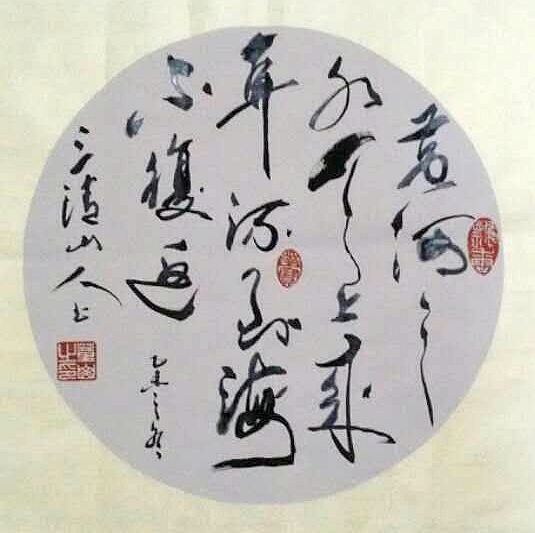 黄河之
水天上来
奔流到海
不復迴
乙未之冬
三清山人书